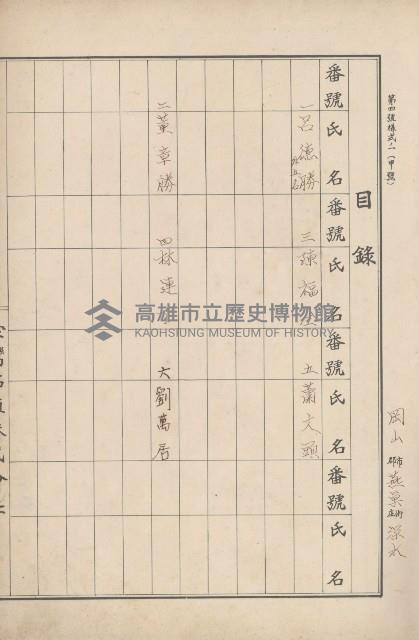 第四號樣式ノ一(甲號)
岡山郡市燕巢庄街深水
目錄
番號 氏名 番號 氏名 番號 氏名 番號 氏名
一 呂德勝 三 陳福 五 蕭大頭
二 黃章勝 四 林連 六 劉萬居
高雄市立歷史博物館
KAOHSIUNG MUSEUM OF HISTORY